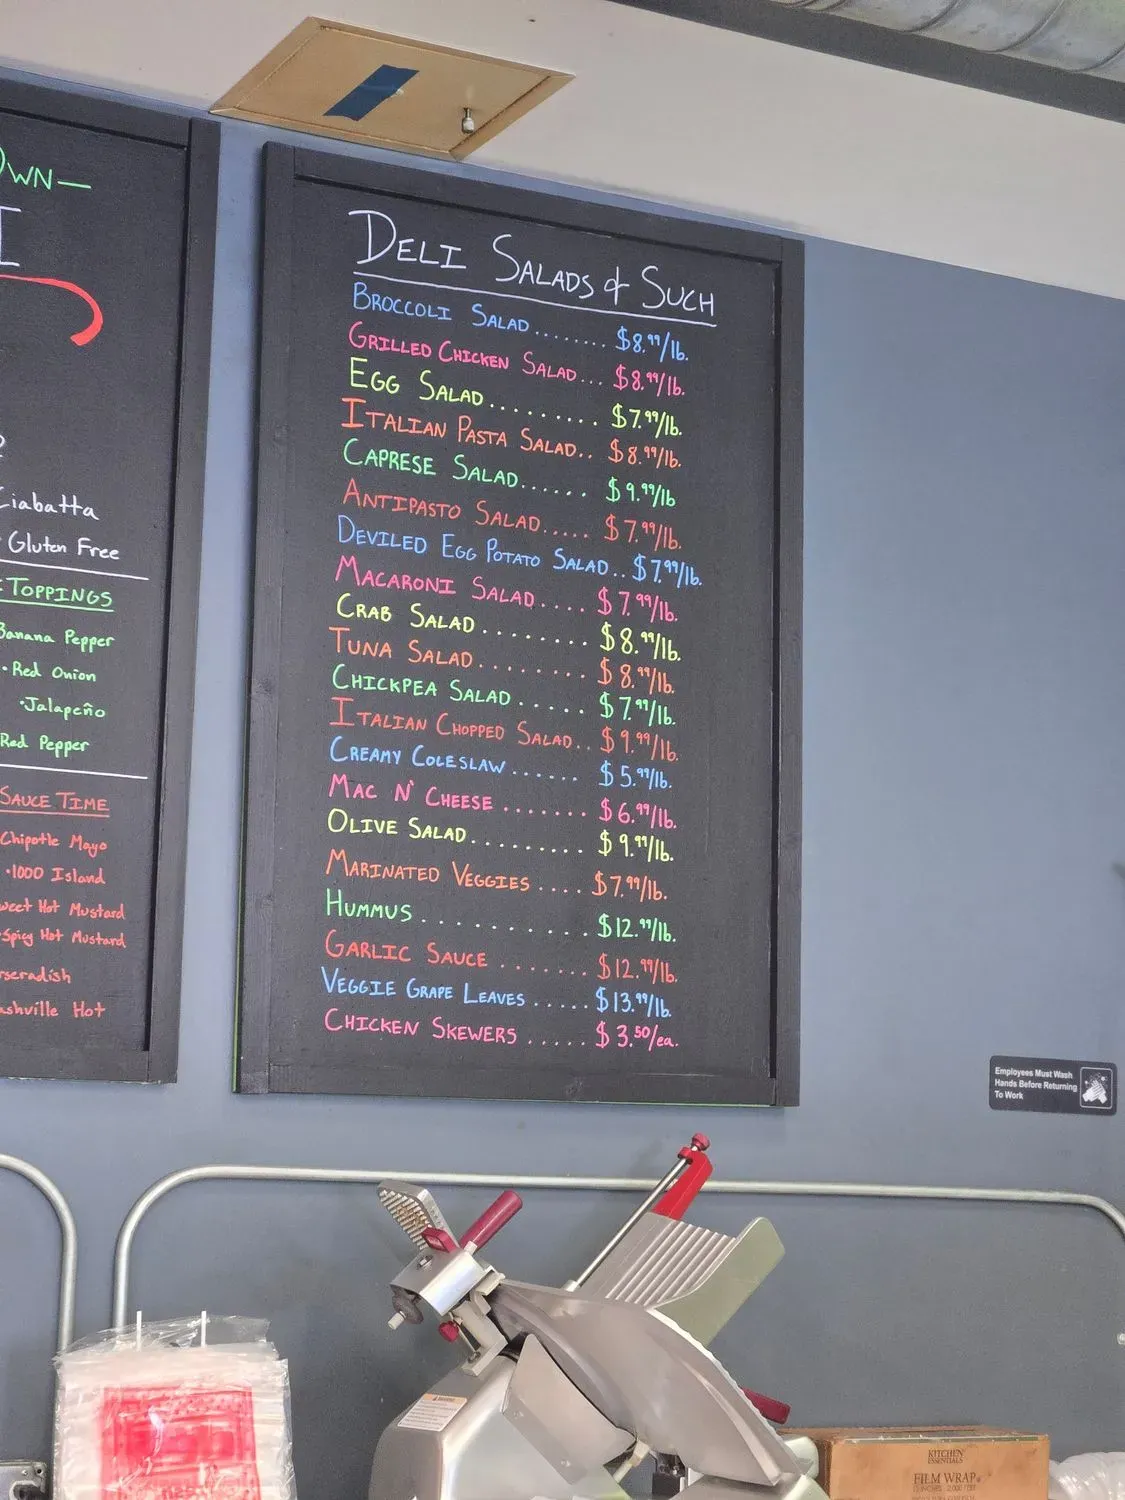 OWN—
Ciabatta
Gluten Free
TOPPINGS
Banana Pepper
•Red Onion
•Jalapeño
Red Pepper
SAUCE TIME
Chipotle Mayo
•1000 Island
weet Hot Mustard
•Spicy Hot Mustard
rseradish
ashville Hot
DELI SALADS & SUCH
BROCCOLI SALAD........ $8.99/lb.
GRILLED CHICKEN SALAD... $8.99/lb.
EGG SALAD.......... $7.99/lb.
ITALIAN PASTA SALAD.. $8.99/lb.
CAPRESE SALAD...... $9.99/lb
ANTIPASTO SALAD..... $7.99/lb.
DEVILED EGG POTATO SALAD.. $7.99/lb.
MACARONI SALAD.... $7.99/lb.
CRAB SALAD......... $8.99/lb.
TUNA SALAD......... $8.99/lb.
CHICKPEA SALAD...... $7.99/lb.
ITALIAN CHOPPED SALAD.. $9.99/lb.
CREAMY COLESLAW...... $5.99/lb.
MAC N' CHEESE ....... $6.99/lb.
OLIVE SALAD.......... $9.99/lb.
MARINATED VEGGIES .... $7.99/lb.
HUMMUS .......... $12.99/lb.
GARLIC SAUCE ....... $12.99/lb.
VEGGIE GRAPE LEAVES ..... $13.99/lb.
CHICKEN SKEWERS ..... $3.50/ea.
Employees Must Wash
Hands Before Returning
To Work
KITCHEN
ESSENTIALS
FILM WRAP